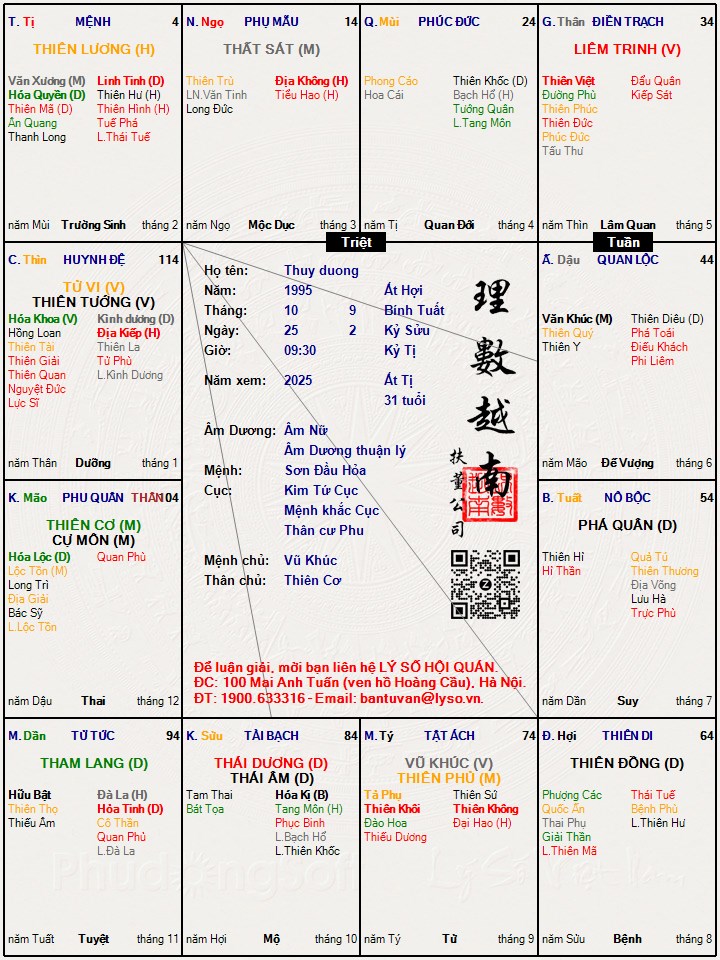 T. Tị MỆNH 4
THIÊN LƯƠNG (H)
Văn Xương (M) Linh Tinh (D)
Hóa Quyền (D) Thiên Hư (H)
Thiên Mã (D) Thiên Hình (H)
Ân Quang Tuế Phá
Thanh Long L.Thái Tuế
năm Mùi Trường Sinh tháng 2
N. Ngọ PHỤ MẪU 14
THẤT SÁT (M)
Thiên Trù Địa Không (H)
LN.Văn Tinh Tiểu Hao (H)
Long Đức
năm Ngọ Mộc Dục tháng 3
Q. Mùi PHÚC ĐỨC 24
Phong Cáo Thiên Khốc (D)
Hoa Cái Bạch Hổ (H)
Tướng Quân
L.Tang Môn
năm Tị Quan Đới tháng 4
G. Thân ĐIỀN TRẠCH 34
LIÊM TRINH (V)
Thiên Việt Đẩu Quân
Đường Phù Kiếp Sát
Thiên Phúc
Thiên Đức
Phúc Đức
Tấu Thư
năm Thìn Lâm Quan tháng 5
Triệt
Tuần
C. Thìn HUYNH ĐỆ 114
TỬ VI (V)
THIÊN TƯỚNG (V)
Hóa Khoa (V) Kình dương (D)
Hồng Loan Địa Kiếp (H)
Thiên Tài Thiên La
Thiên Giải Tử Phù
Thiên Quan L.Kình Dương
Nguyệt Đức
Lực Sĩ
năm Thân Dưỡng tháng 1
Họ tên: Thuy duong
Năm: 1995 Ất Hợi
Tháng: 10 9 Bính Tuất
Ngày: 25 2 Kỷ Sửu
Giờ: 09:30 Kỷ Tị
Năm xem: 2025 Ất Tị
31 tuổi
Âm Dương: Âm Nữ
Âm Dương thuận lý
Mệnh: Sơn Đầu Hỏa
Cục: Kim Tứ Cục
Mệnh khắc Cục
Thân cư Phu
Mệnh chủ: Vũ Khúc
Thân chủ: Thiên Cơ
理數越南
扶董公司
Để luận giải, mời bạn liên hệ LÝ SỐ HỘI QUÁN.
ĐC: 100 Mai Anh Tuấn (ven hồ Hoàng Cầu), Hà Nội.
ĐT: 1900.633316 - Email: bantuvan@lyso.vn.
Ấ. Dậu QUAN LỘC 44
Văn Khúc (M) Thiên Diêu (D)
Thiên Quý Phá Toái
Thiên Y Điếu Khách
Phi Liêm
năm Mão Đế Vượng tháng 6
K. Mão PHU QUÂN THÂN 104
THIÊN CƠ (M)
CỰ MÔN (M)
Hóa Lộc (D) Quan Phù
Lộc Tồn (M)
Long Trì
Địa Giải
Bác Sỹ
L.Lộc Tồn
năm Dậu Thai tháng 12
B. Tuất NÔ BỘC 54
PHÁ QUÂN (D)
Thiên Hỉ Quả Tú
Hỉ Thần Thiên Thương
Địa Võng
Lưu Hà
Trực Phù
năm Dần Suy tháng 7
M. Dần TỬ TỨC 94
THAM LANG (D)
Hữu Bật Đà La (H)
Thiên Thọ Hỏa Tinh (D)
Thiếu Âm Cô Thần
Quan Phủ
L.Đà La
năm Tuất Tuyệt tháng 11
K. Sửu TÀI BẠCH 84
THÁI DƯƠNG (D)
THÁI ÂM (D)
Tam Thai Hóa Kị (B)
Bát Tọa Tang Môn (H)
Phục Binh
L.Bạch Hổ
L.Thiên Khốc
năm Hợi Mộ tháng 10
M. Tý TẬT ÁCH 74
VŨ KHÚC (V)
THIÊN PHỦ (M)
Tả Phụ Thiên Sứ
Thiên Khôi Thiên Không
Đào Hoa Đại Hao (H)
Thiếu Dương
năm Tý Tử tháng 9
Đ. Hợi THIÊN DI 64
THIÊN ĐỒNG (D)
Phượng Các Thái Tuế
Quốc Ấn Bệnh Phù
Thai Phụ L.Thiên Hư
Giải Thần
L.Thiên Mã
năm Sửu Bệnh tháng 8